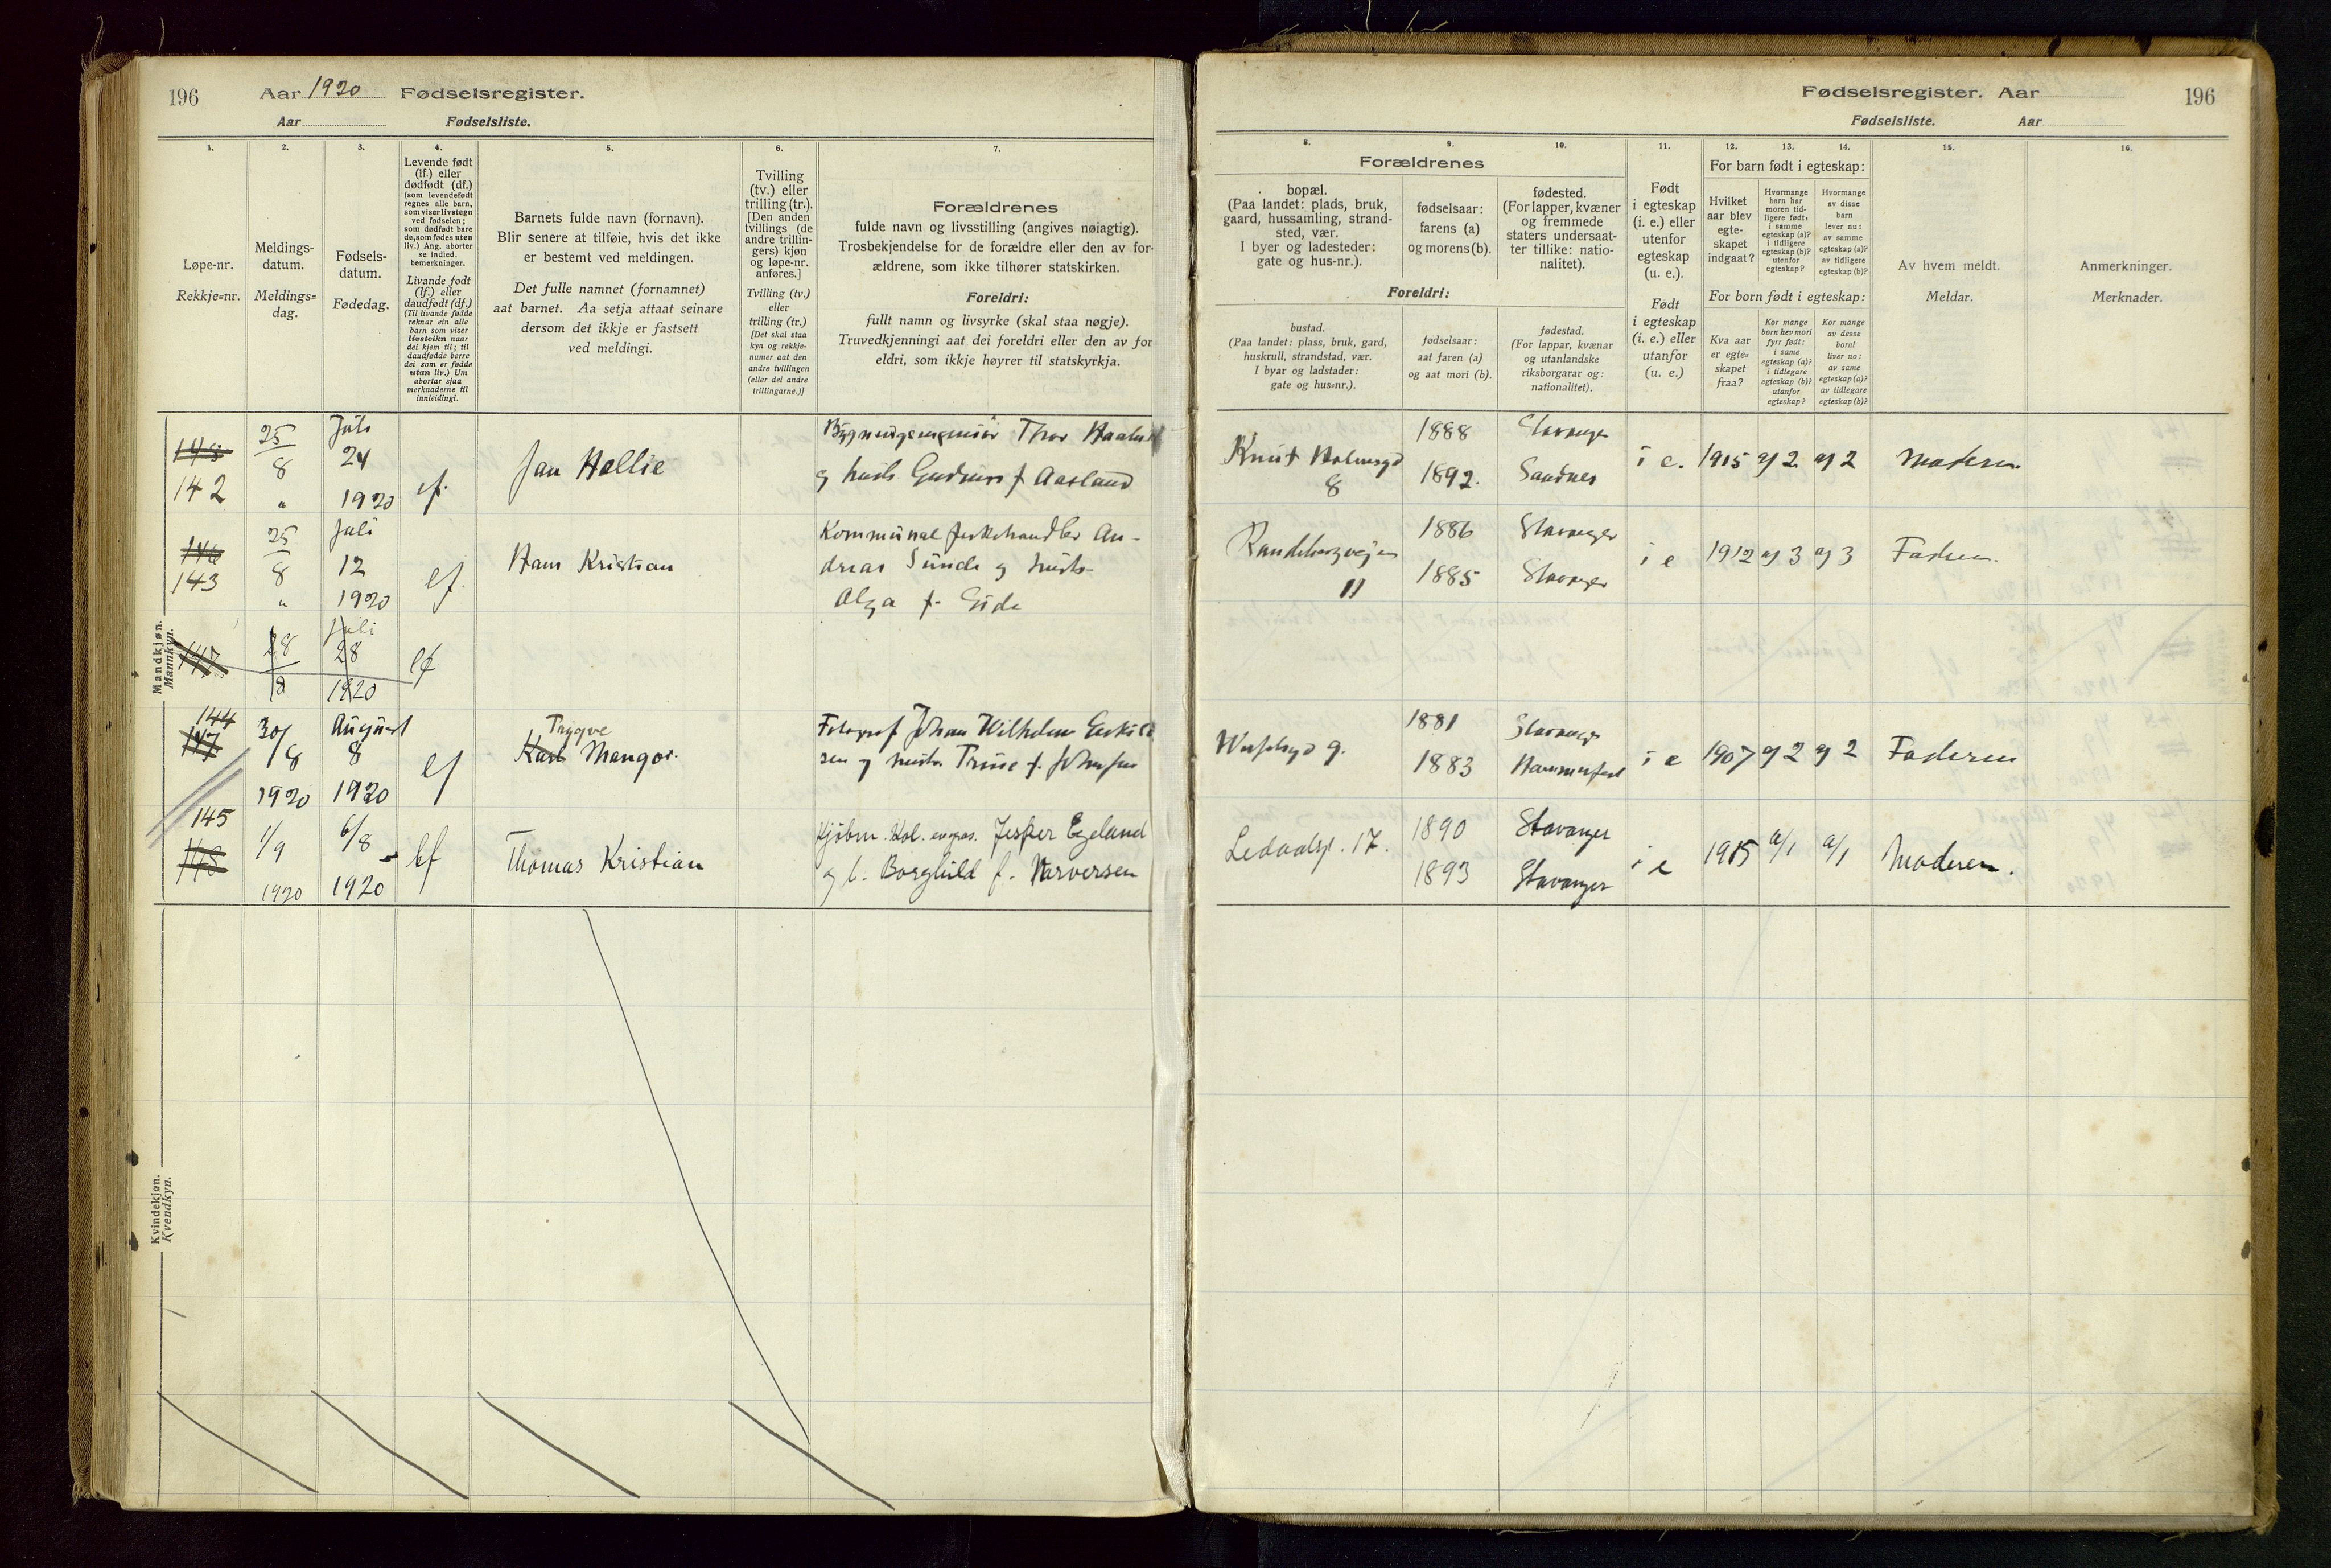 196 Aar 1920 Fødselsregister.
Aar Fødselsliste.
1.
Løpe-nr.
Rekkje=nr.
2.
Meldings-
datum.
Meldings=
dag.
3.
Fødsels-
datum.
Fødedag.
4.
Levende født
(lf.) eller
dødfødt (df.)
(som levendefødt
regnes alle barn,
som viser livstegn
ved fødselen;
som dødfødt bare
de, som fødes uten
liv.) Ang. aborter
se indled.
bemerkninger.
Livande født
(lf.) eller
daudfødt (df.)
(Til livande fødde
reknar ein alle
barn som viser
livsteikn naar
dei kjem til; til
daudfødde berre
dei som er fødde
utan liv.) Um
abortar sjaa
merknaderne til
innleidingi.
5.
Barnets fulde navn (fornavn).
Blir senere at tilføie, hvis det ikke
er bestemt ved meldingen.
Det fulle namnet (fornamnet)
aat barnet. Aa setja attaat seinare
dersom det ikkje er fastsett
ved meldingi.
6.
Tvilling
(tv.) eller
trilling (tr.).
[Den anden
tvillings (de
andre trillin-
gers) kjøn
og løpe-nr.
anføres.]
Tvilling (tv.)
eller
trilling (tr.)
[Det skal staa
kyn og rekkje-
numer aat den
andre tvillingen
(eller dei andre
trillingarne.)]
7.
Forældrenes
fulde navn og livsstilling (angives nøiagtig).
Trosbekjendelse for de forældre eller den av for-
ældrene, som ikke tilhører statskirken.
Foreldri:
fullt namn og livsyrke (skal staa nøgje).
Truvedkjenningi aat dei foreldri eller den av for
eldri, som ikkje høyrer til statskyrkja.
Mandkjøn.
Mannkyn.
145
142
25
8
"
Juli
24
1920
lf.
Jan Hallie
Bygningsingeniør Thor Haaland
og hustr. Gudrun f. Aasland
146
143
25
8
"
Juli
12
1920
lf.
Hans Kristian
Kommunal fiskehandler An-
dreas Sunde og hustr.
Olga f. Eide
147
28
8
Juli
28
1920
lf
144
147
30/
8
1920
August
8
1920
lf
Trygve
Karl Mangor.
Fotograf Johan Wilhelm Eskild
sen og hustr. Trine f. Johnsen
145
148
1/9
1920
6/8
1920
lf
Thomas Kristian
Kjøbm. Kol. engros. Jesper Egeland
og h. Borghild f. Narversen
Kvindekjøn.
Kvendkyn.
Fødselsregister. Aar 196
Fødselsliste. Aar
8.
Forældrenes
bopæl.
(Paa landet: plads, bruk,
gaard, hussamling, strand-
sted, vær.
I byer og ladesteder:
gate og hus-nr.).
9.
fødselsaar:
farens (a)
og morens (b).
10.
fødested.
(For lapper, kvæner
og fremmede
staters undersaat-
ter tillike: natio-
nalitet).
Foreldri:
bustad.
(Paa landet: plass, bruk, gard,
huskrull, strandstad, vær.
I byar og ladstader:
gate og hus-nr.).
fødselsaar:
aat faren (a)
og aat mori (b).
fødestad.
(For lappar, kvænar
og utanlandske
riksborgarar og:
nationalitet).
11.
Født
i egteskap
(i. e.) eller
utenfor
egteskap
(u. e.).
Født
i egteskap
(i. e.) eller
utanfor
(u. e.)
12. 13. 14.
For barn født i egteskap:
Hvilket
aar blev
egte-
skapet
indgaat?
Hvormange
barn har
moren tid-
ligere født:
i samme
egteskap (a)?
i tidligere
egteskap (b)?
utenfor
egteskap?
Hvormange
av disse
barn
lever nu:
av samme
egteskap (a)?
av tidligere
egteskap (b)?
For born født i egteskap:
Kva aar
er egte-
skapet
fraa?
Kor mange
born hev mori
fyrr født:
i same
egteskap (a)?
i tidlegare
egteskap (b)?
utanfor
egteskap?
Kor mange
av desse
borni
liver no:
av same
egteskap (a)?
av tidlegare
egteskap (b)?
15.
Av hvem meldt.
Meldar.
16.
Anmerkninger.
Merknader.
Knut Holmsgd
8
1888
1892.
Stavanger
Sandnes
i e. 1915 a) 2 a) 2 Moderen
Randebergveien
11
1886
1885
Stavanger
Stavanger
i e 1912 a) 3 a) 3 Faderen.
9.
1881
1883
Stavanger
Hammerfest
i e 1907 a) 2 a) 2 Faderen
Ledaalsg. 17.
1890
1893
Stavanger
Stavanger
i e 1915 a/1 a/1 Moderen.